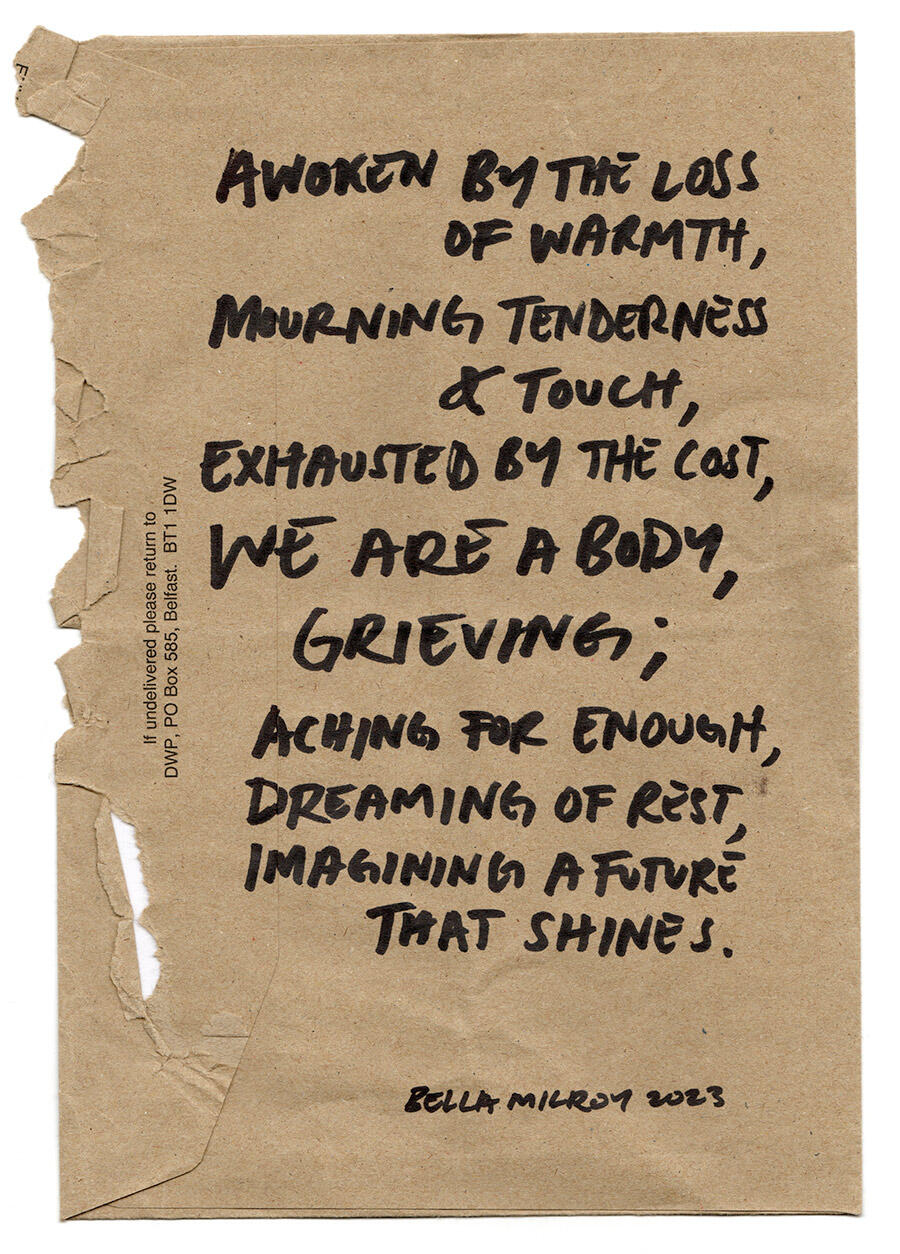 AWOKEN BY THE LOSS
OF WARMTH,
MOURNING TENDERNESS
& TOUCH,
EXHAUSTED BY THE COST,
WE ARE A BODY,
GRIEVING;
ACHING FOR ENOUGH,
DREAMING OF REST,
IMAGINING A FUTURE
THAT SHINES.
BELLA MILROY 2023
If undelivered please return to
DWP, PO Box 585, Belfast. BT1 1DW